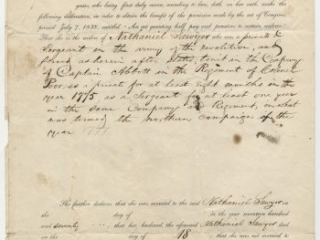 years who being first duly sworn, according to law, doth, on her oath, make the
following declaration, in order to obtain the benefit of the provision made by the act of Congress
passed July 7, 1838, entitled An act granting half pay and pensions to certain widows
That she is the widow of Nathaniel Sawyer who was a private &
Sergeant in the army of the revolution, and
served as herein after Stated, to wit in the Company
of Captain Abbott in the Regiment of Colonel
Poor, as a private for at least eight months in the
year 1775 as a Sergeant for at least one year
in the same Company and Regiment, in what
was termed the northern campaign of the
year
She further declares that she was married to the said Nathaniel Sawyer
on the day of in the year seventeen hundred
and seventy that her husband, the aforesaid Nathaniel Sawyer died
on the day of 18 that she was not married to